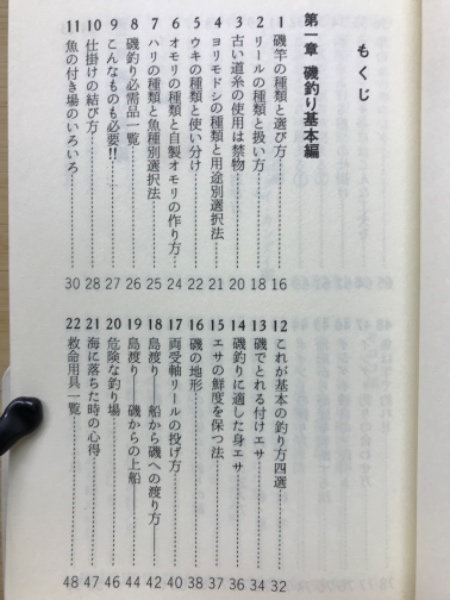 もくじ
第一章 磯釣り基本編
1 磯竿の種類と選び方 16
2 リールの種類と扱い方 18
3 古い道糸の使用は禁物 20
4 ヨリモドシの種類と用途別選択法 21
5 ウキの種類と使い分け 22
6 オモリの種類と自製オモリの作り方 24
7 ハリの種類と魚種別選択法 25
8 磯釣り必需品一覧 26
9 こんなものも必要!! 27
10 仕掛けの結び方 28
11 魚の付き場のいろいろ 30
12 これが基本の釣り方四選 32
13 磯でとれる付けエサ 34
14 磯釣りに適した身エサ 36
15 エサの鮮度を保つ法 37
16 磯の地形 38
17 両受軸リールの投げ方 40
18 島渡り――船から磯への渡り方 42
19 島渡り――磯からの上船 44
20 危険な釣り場 46
21 海に落ちた時の心得 47
22 救命用具一覧 48